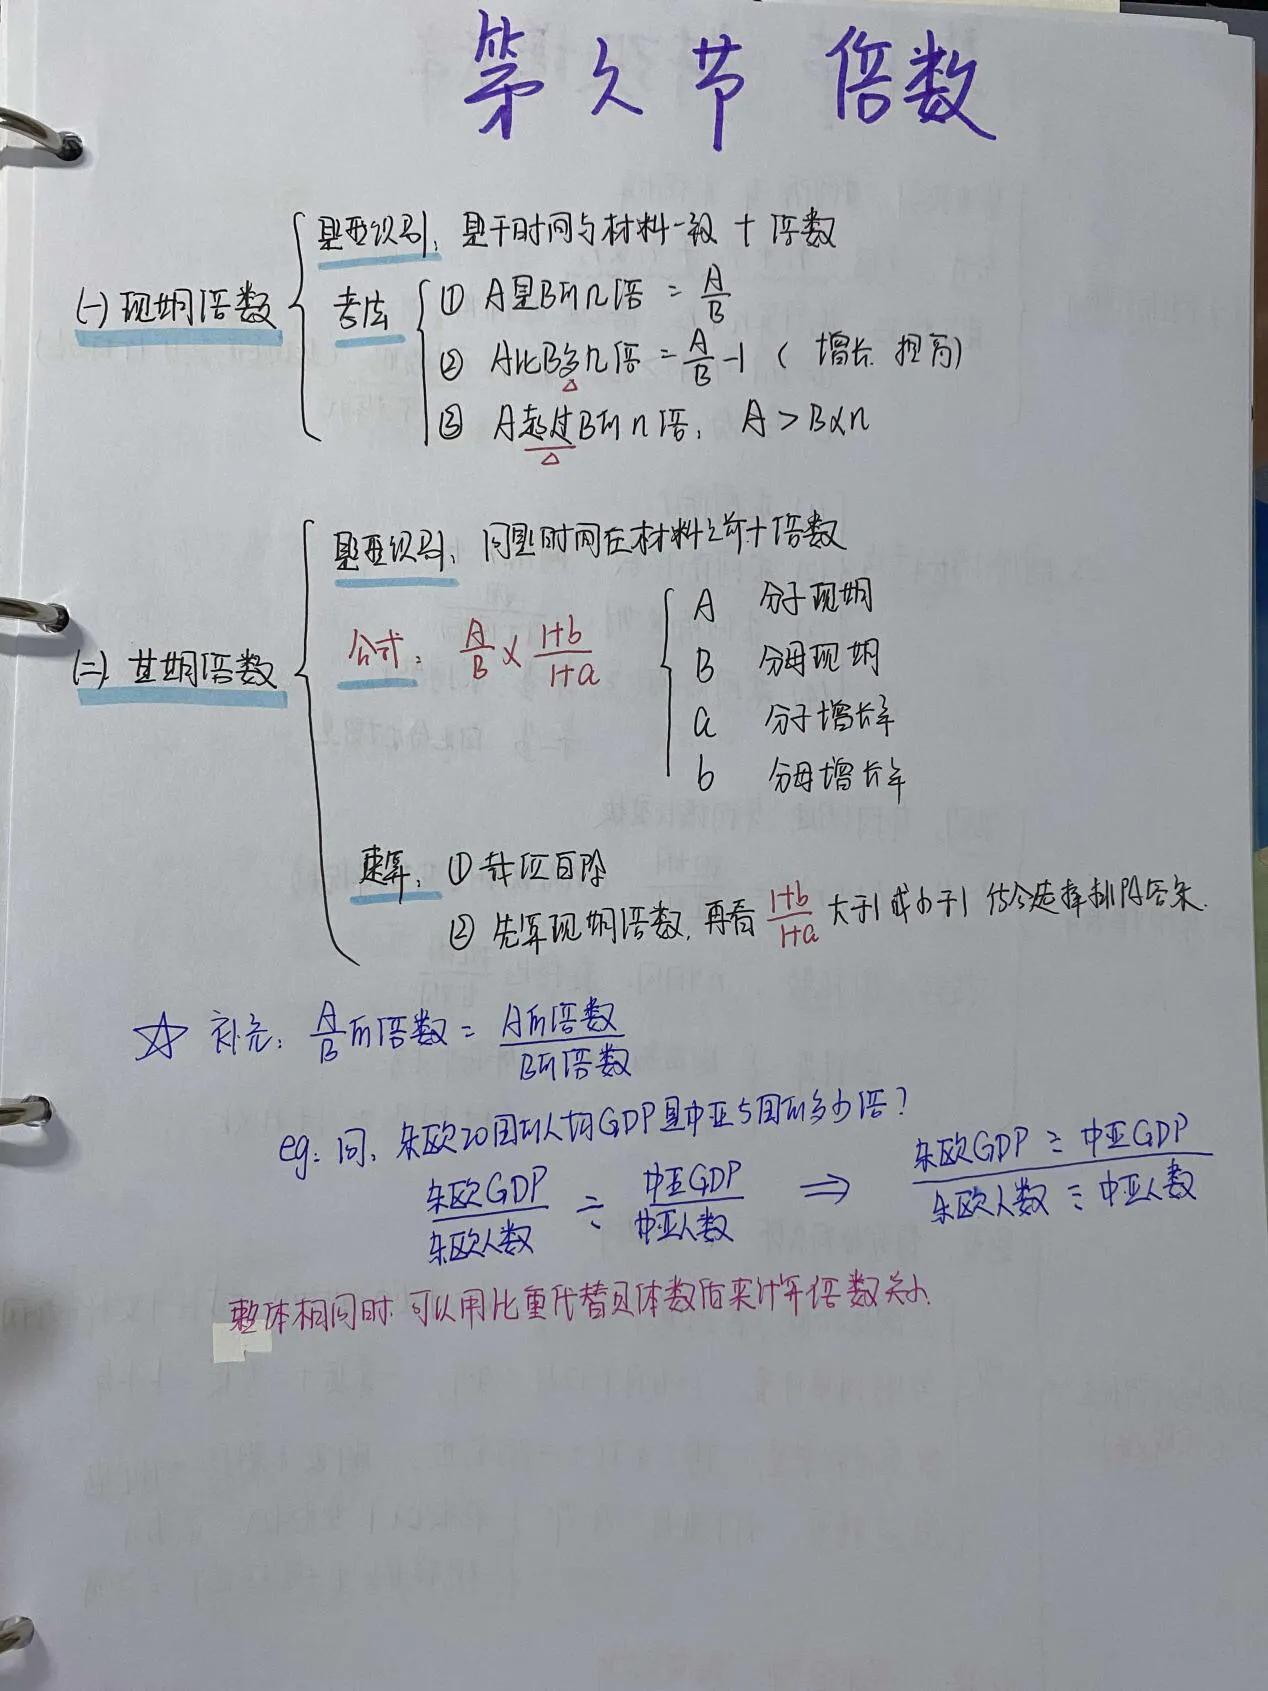 第六节 倍数
(一) 现期倍数
题型识别: 题干时间与材料一致 + 倍数
考法
① A是B的n倍 = A/B
② A比B多n倍 = A/B - 1 ( 增长. 提高)
③ A超过B的n倍, A > B×n
(二) 基期倍数
题型识别: 问题时间在材料之前 + 倍数
公式: A/B × 1+b/1+a
A 分子现期
B 分母现期
a 分子增长率
b 分母增长率
速算: ① 截位直除
② 先算现期倍数, 再看 1+b/1+a 大于1或小于1 结合选择排除答案.
☆ 补充: A/B的倍数 = A的倍数/B的倍数
eg: 问, 东欧20国的人均GDP是中亚5国的多少倍?
东欧GDP/东欧人数 ÷ 中亚GDP/中亚人数 ⇒ 东欧GDP ÷ 中亚GDP/东欧人数 ÷ 中亚人数
整体相同时. 可以用比重代替具体数值来计算倍数关系.